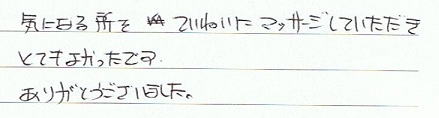 気になる所を ていねいに マッサージしていただき
とてもよかったです.
ありがとうございました。